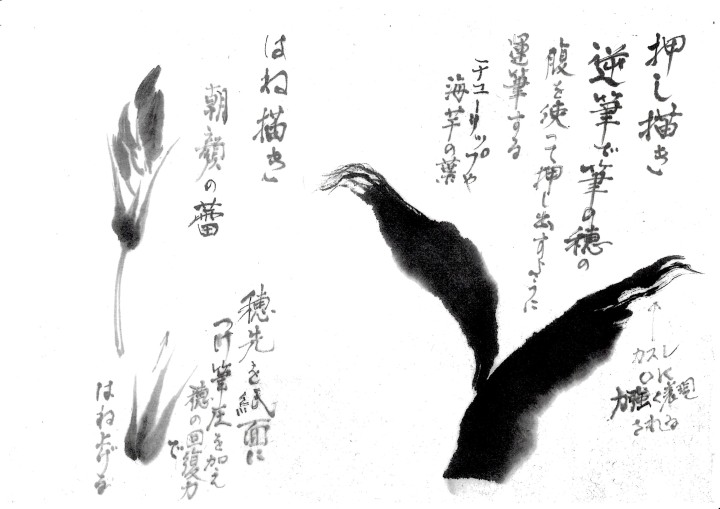 押し描き
逆筆で筆の穂の
腹を使って押し出すように
運筆する
チューリップや
海芋の葉
カスレ
に
力強く表現
される
はね描き
朝顔の蕾
穂先を紙面に
つけ筆圧を加え
穂の回復力
で
はね上げる